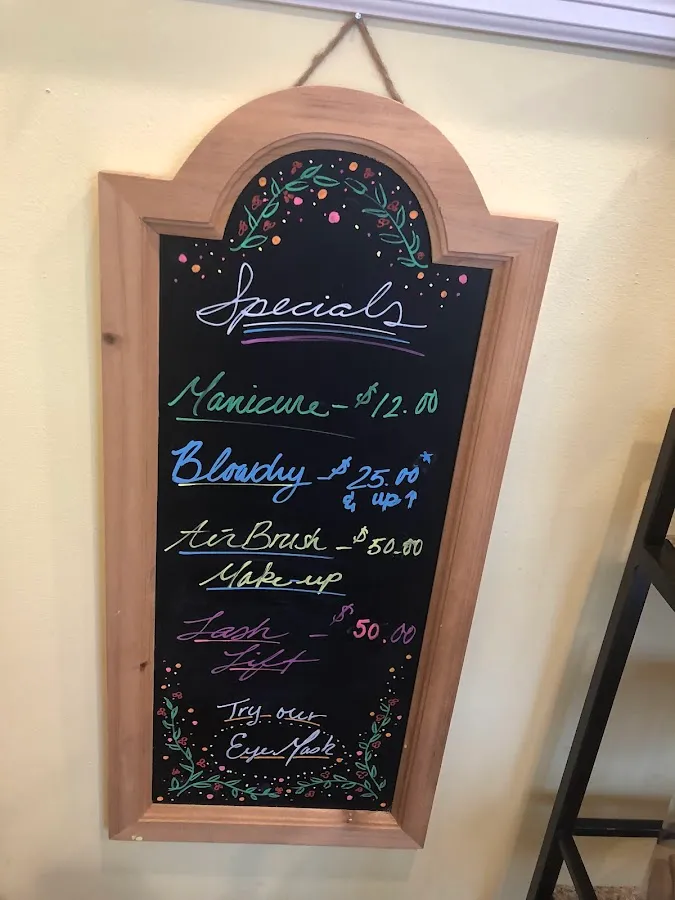 Specials
Manicure - $12.00
Blowdry - $25.00*
& up ↑
Air Brush - $50.00
Make-up
Lash - $50.00
Lift
Try our
Eye Mask